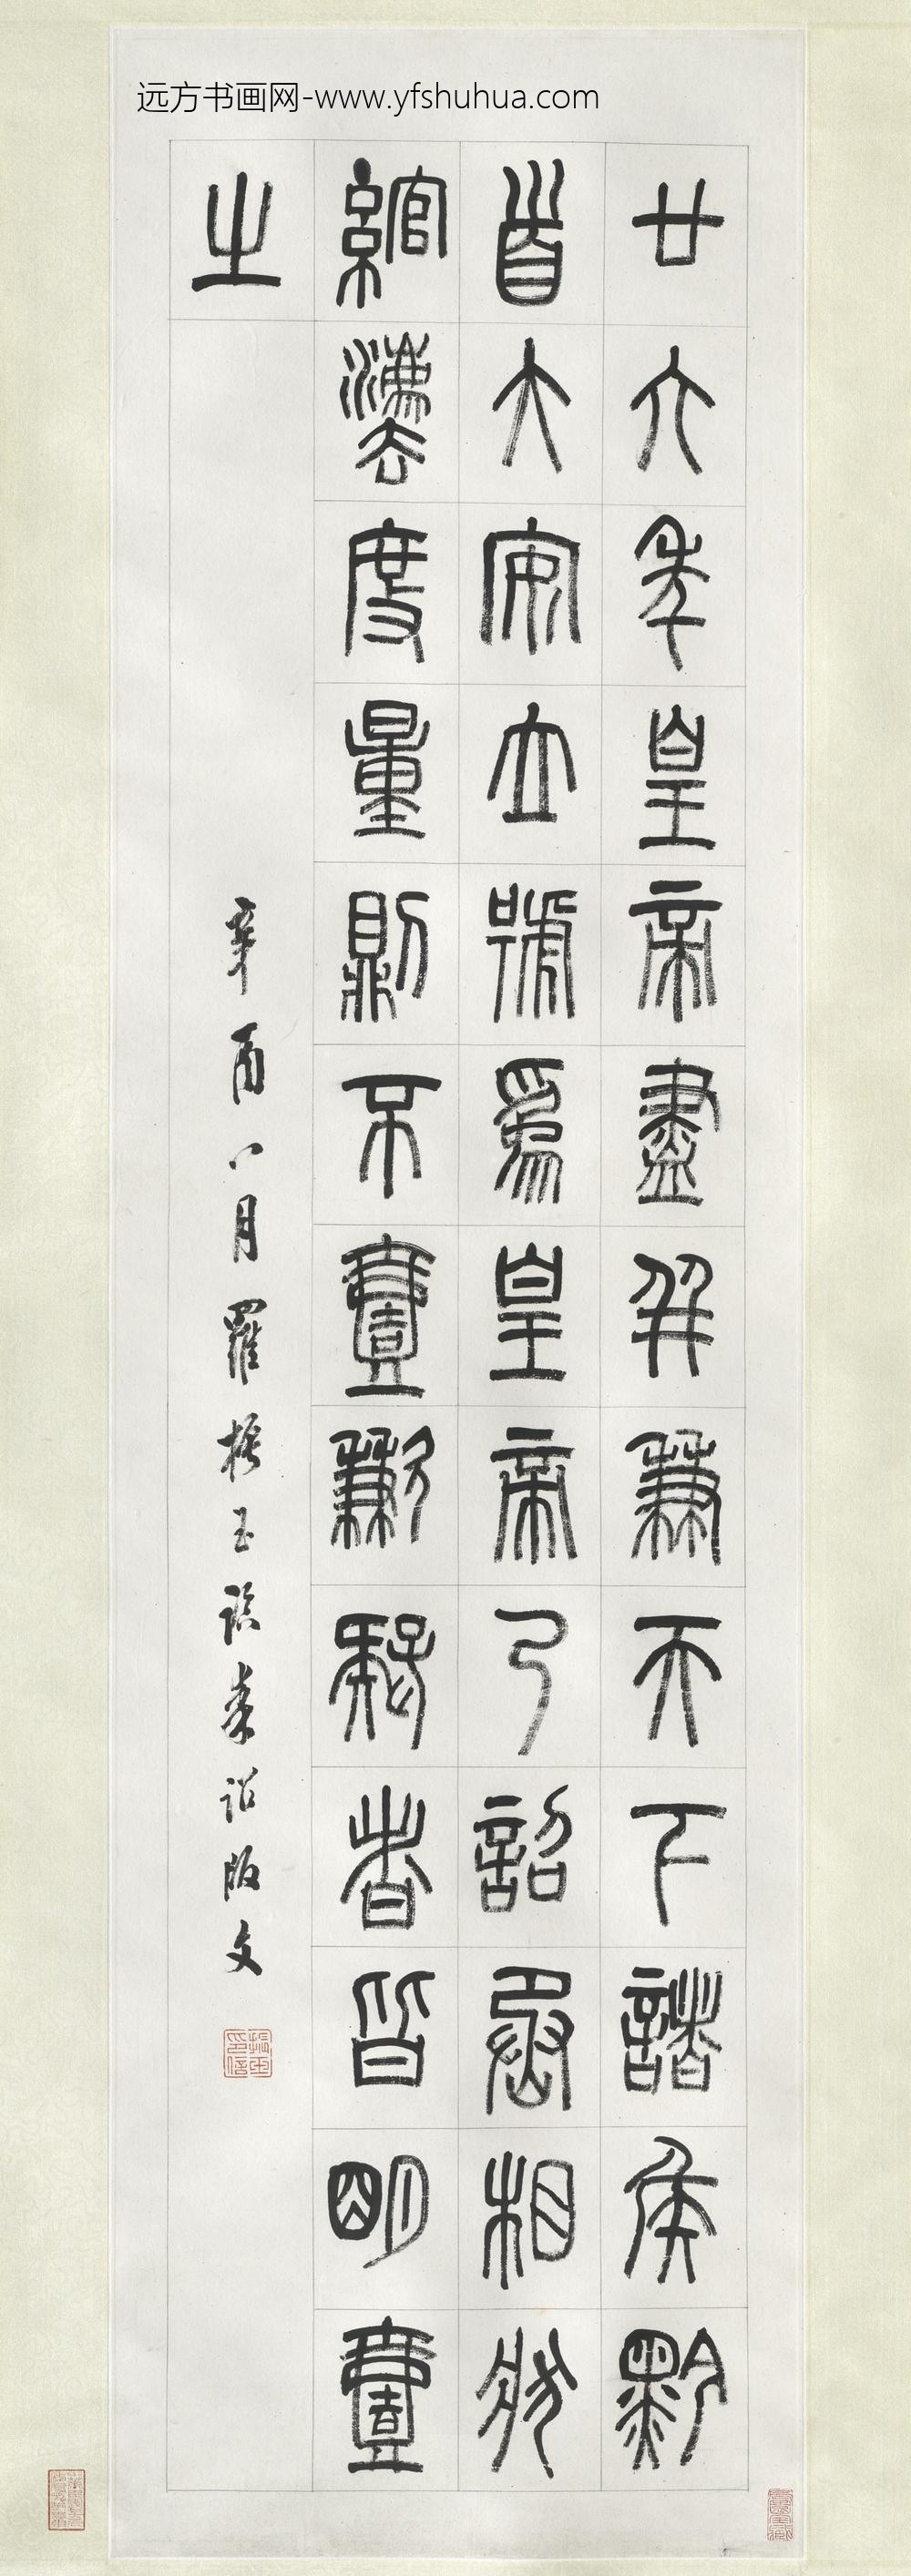 远方书画网-www.yfshuhua.com
廿六年皇帝盡并兼天下諸侯黔
首大安立號爲皇帝乃詔丞相狀
綰灋度量則不壹歉疑者皆明壹
之
辛酉八月羅振玉臨秦詔版文